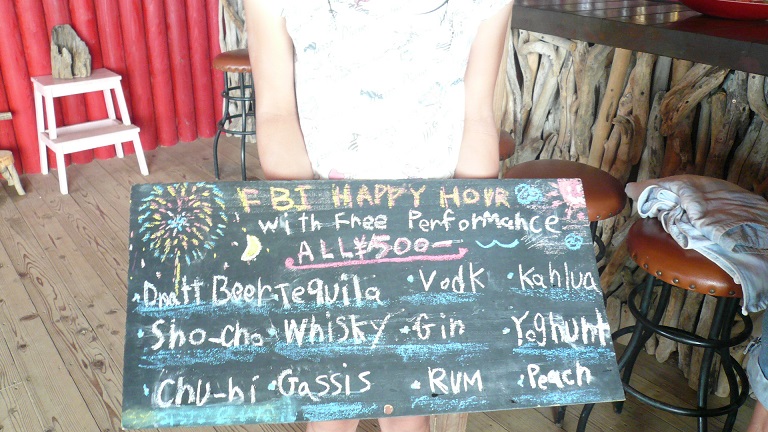 FBI HAPPY HOUR
with Free Performance
ALL ¥500-
・Draft Beer ・Tequila ・Vodk ・Kahlua
・Sho-cho ・Whisky ・Gin ・Yoghurt
・Chu-hi ・Gassis ・RUM ・Peach